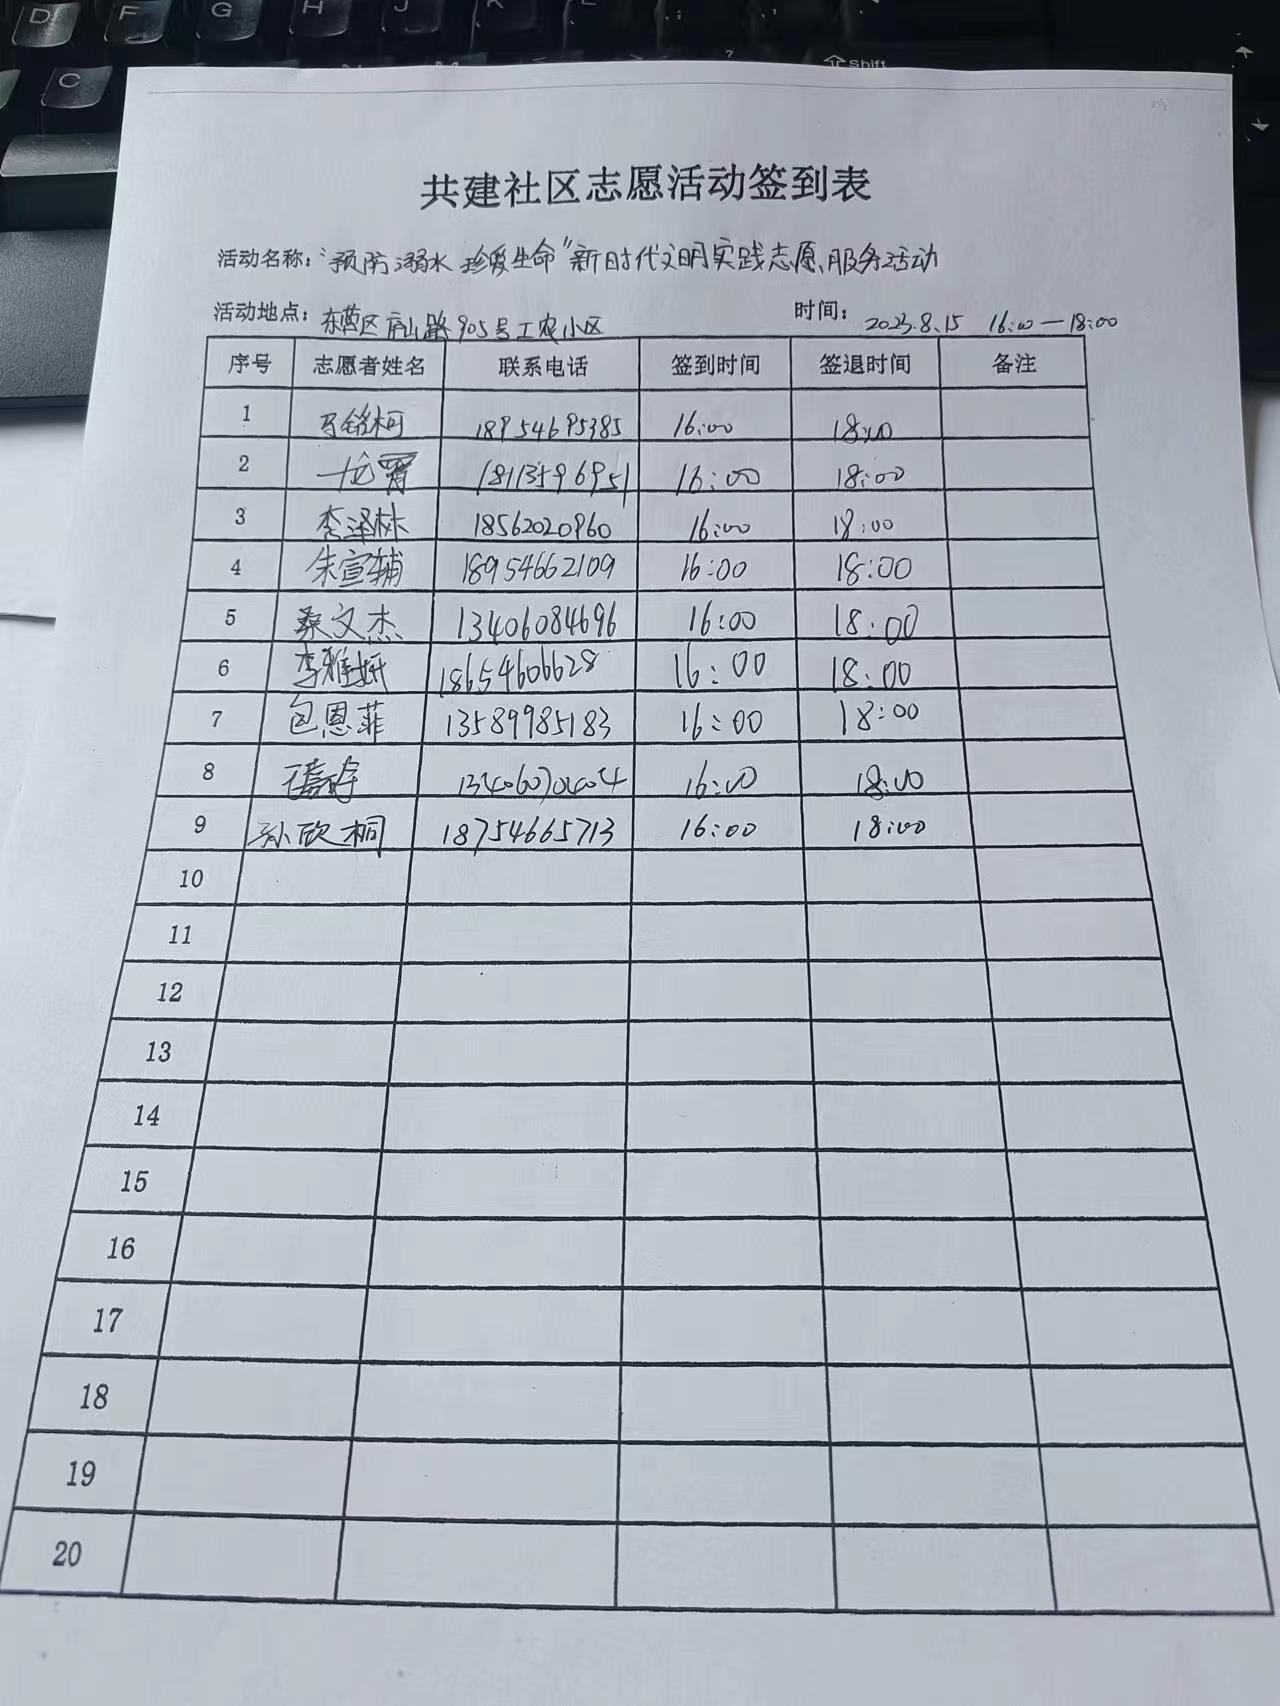 D F G H J K L
C
?
Shift
共建社区志愿活动签到表
活动名称："预防溺水 珍爱生命"新时代文明实践志愿服务活动
活动地点：东营区府山路905号工农小区 时间：2023.8.15 16:00—18:00
序号 志愿者姓名 联系电话 签到时间 签退时间 备注
1 铭柯 18954695385 16:00 18:00
2 18113596951 16:00 18:00
3 李泽林 18562020960 16:00 18:00
4 朱宣辅 18954662109 16:00 18:00
5 桑文杰 13406084696 16:00 18:00
6 李雅妍 18654606628 16:00 18:00
7 包恩菲 13589985183 16:00 18:00
8 16:00 18:00
9 孙欣桐 18754665713 16:00 18:00
10
11
12
13
14
15
16
17
18
19
20